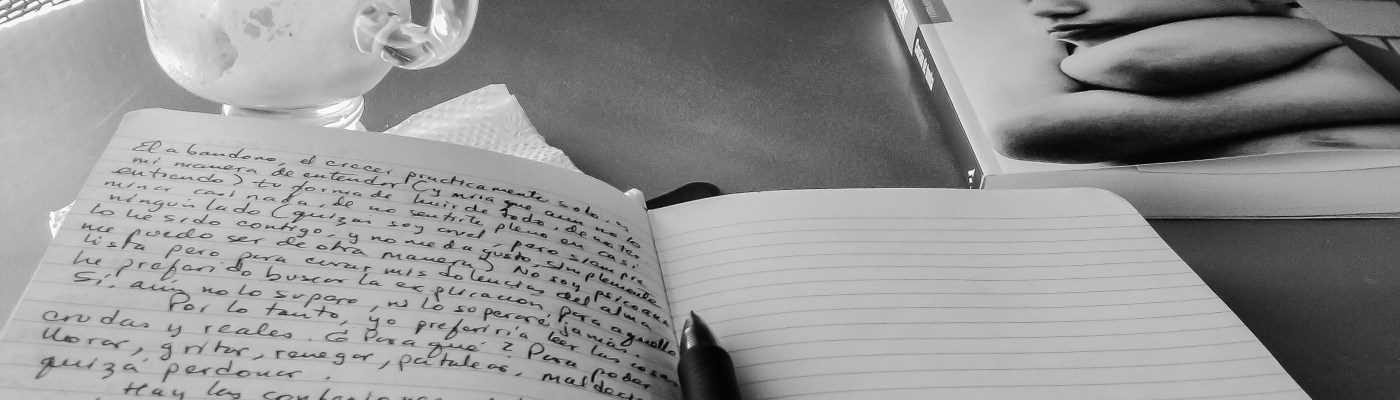 El abandono, el crecer prácticamente solo, en
mi manera de entender (y mira que aun no lo
entiendo) tu forma de huir de todo, de no ter
minar casi nada, de no sentirte pleno en casi
ningún lado (quizás soy cruel, pero siempre
lo he sido contigo, y no me da gusto, simplemente
me puedo ser de otra manera) No soy psicoana
lista pero para curar mis dolencias del alma
he preferido buscar la explicación, para aquello
Si, aún no lo supero, ni lo superaré jamás.
Por lo tanto, yo preferiría leer las cosas
crudas y reales. ¿Para qué? Para poder
llorar, gritar, renegar, patalear, maldecir
quizá perdonar.
Hay las